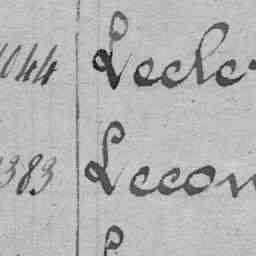 1044 Lecler
383 Lecon